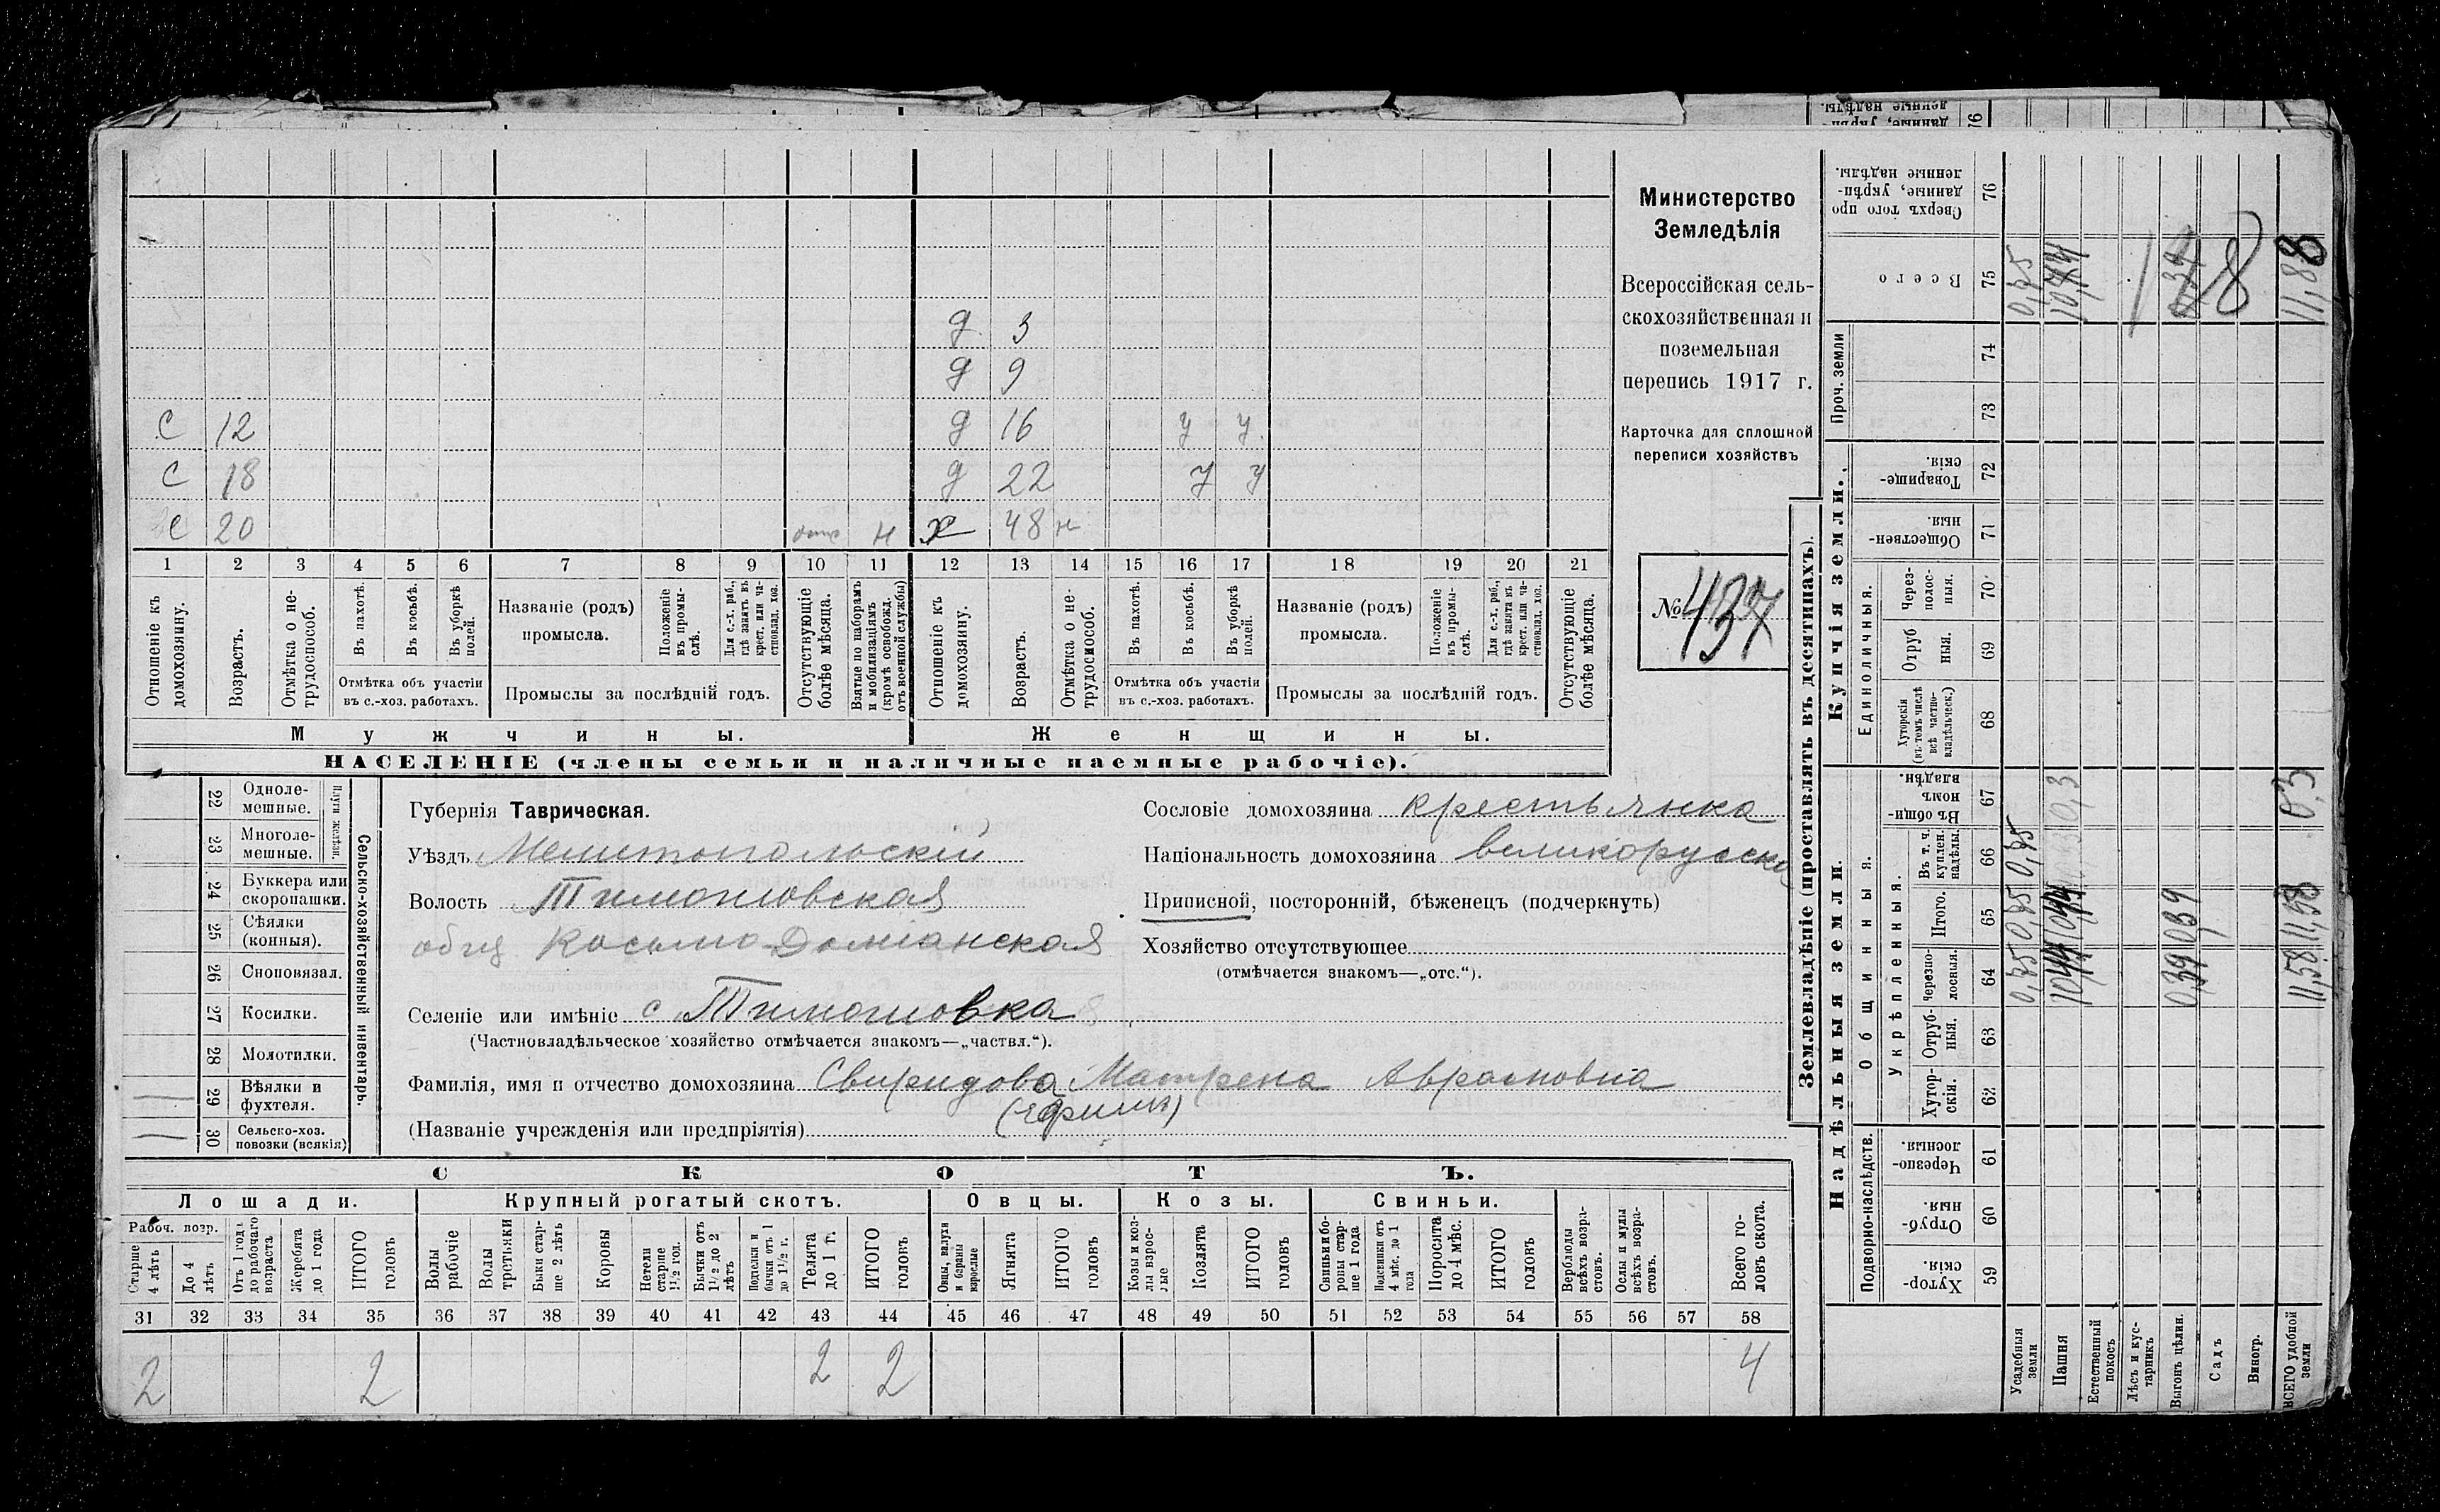 Министерство
Земледѣлія
Всероссійская сель-
скохозяйственная и
поземельная
перепись 1917 г.
Карточка для сплошной
переписи хозяйствъ
№ 437
д 3
д 9
с 12 д 16 у у
с 18 д 22 у у
с 20 н х 48 н
1 2 3 4 5 6 7 8 9 10 11 12 13 14 15 16 17 18 19 20 21
Отношеніе къ домохозяину.
Возрастъ.
Отмѣтка о не-трудоспособ.
Въ пахотѣ.
Въ косьбѣ.
Въ уборкѣ полей.
Отмѣтка объ участіи
въ с.-хоз. работахъ.
Названіе (родъ)
промысла.
Положеніе въ промы-слѣ.
Для с.-х. раб., гдѣ занятъ въ крест. или ча-стновлад. хоз.
Промыслы за послѣдній годъ.
Отсутствующіе болѣе мѣсяца.
Взятые по наборамъ и мобилизаціямъ (кромѣ освобожд. отъ военной службы)
Отношеніе къ домохозяину.
Возрастъ.
Отмѣтка о не-трудоспособ.
Въ пахотѣ.
Въ косьбѣ.
Въ уборкѣ полей.
Отмѣтка объ участіи
въ с.-хоз. работахъ.
Названіе (родъ)
промысла.
Положеніе въ промы-слѣ.
Для с.-х. раб., гдѣ занята въ крест. или ча-стновлад. хоз.
Промыслы за послѣдній годъ.
Отсутствующіе болѣе мѣсяца.
Мужчины. Женщины.
НАСЕЛЕНІЕ (члены семьи и наличные наемные рабочіе).
Сельско-хозяйственный инвентарь.
Плуги желѣзн.
22 Одноле-
мешные.
23 Многоле-
мешные.
24 Буккера или
скоропашки.
25 Сѣялки
(конныя).
26 Сноповязал.
27 Косилки.
28 Молотилки.
29 Вѣялки и
фухтеля.
30 Сельско-хоз.
повозки (всякія)
Губернія Таврическая.
Уѣздъ Мелитопольскій
Волость Тимошовская
общ Косьмо-Доміанская
Селеніе или имѣніе с Тимошовка
(Частновладѣльческое хозяйство отмѣчается знакомъ—„частвл.“).
Фамилія, имя и отчество домохозяина Свиридова Матрена
(Ефимъ)
(Названіе учрежденія или предпріятія)
Сословіе домохозяина крестьянка
Національность домохозяина великорусска
Приписной, посторонній, бѣженецъ (подчеркнуть)
Хозяйство отсутствующее
(отмѣчается знакомъ—„отс.“).
СКОТЪ.
Лошади. Крупный рогатый скотъ. Овцы. Козы. Свиньи.
Рабоч. возр.
Старше 4 лѣтъ
До 4 лѣтъ
Отъ 1 года до рабочаго возраста
Жеребята до 1 года
ИТОГО головъ
Волы рабочіе
Волы третьяки
Быки стар-ше 2 лѣтъ
Коровы
Нетели старше 1½ год.
Бычки отъ 1½ до 2 лѣтъ
Подтелки и бычки отъ 1 до 1½ г.
Телята до 1 г.
ИТОГО головъ
Овцы, валухи и бараны взрослые
Ягнята
ИТОГО головъ
Козы и коз-лы взрос-лые
Козлята
ИТОГО головъ
Свиньи и бо-ровы стар-ше 1 года
Подсвинки отъ 4 мѣс. до 1 года
Поросята до 4 мѣс.
ИТОГО головъ
Верблюды всѣхъ возра-стовъ.
Ослы и мулы всѣхъ возра-стовъ.
Всего го-ловъ скота.
31 32 33 34 35 36 37 38 39 40 41 42 43 44 45 46 47 48 49 50 51 52 53 54 55 56 57 58
2 2 2 2 4
Землевладѣніе (проставлять въ десятинахъ).
Надѣльныя земли.
Купчія земли.
Проч. земли
Подворно-наслѣдств.
Общинныя.
Укрѣпленныя.
Единоличныя.
Хутор-скія. 59
Отруб-ныя. 60
Черезпо-лосныя. 61
Хутор-скія. 62
Отруб-ныя. 63
Черезпо-лосныя. 64
Итого. 65
Въ т. ч. куплен. надѣлы. 66
Въ общин-номъ владѣн. 67
Хуторскія (въ томъ числѣ всѣ частно-владѣльческ.) 68
Отруб ныя. 69
Через-полос-ныя. 70
Обществен-ныя. 71
Товарище-скія. 72
73
74
Всего 75
Сверхъ того про данные, укрѣп-ленные надѣлы. 76
Усадебныя земли
Пашня
Естественный покосъ
Лѣсъ и кус-тарникъ
Выгонъ цѣлин.
Садъ
Виногр.
ВСЕГО удобной земли
0,39 0,39
11,58 11,58 0,3 11,88